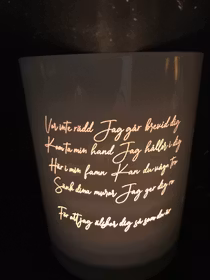 Var inte rädd Jag går bredvid dig
Kom ta min hand Jag håller i dig
Här i min famn Kan du våga tro
Sänk dina murar Jag ger dig ro
För att jag älskar dig så som du är